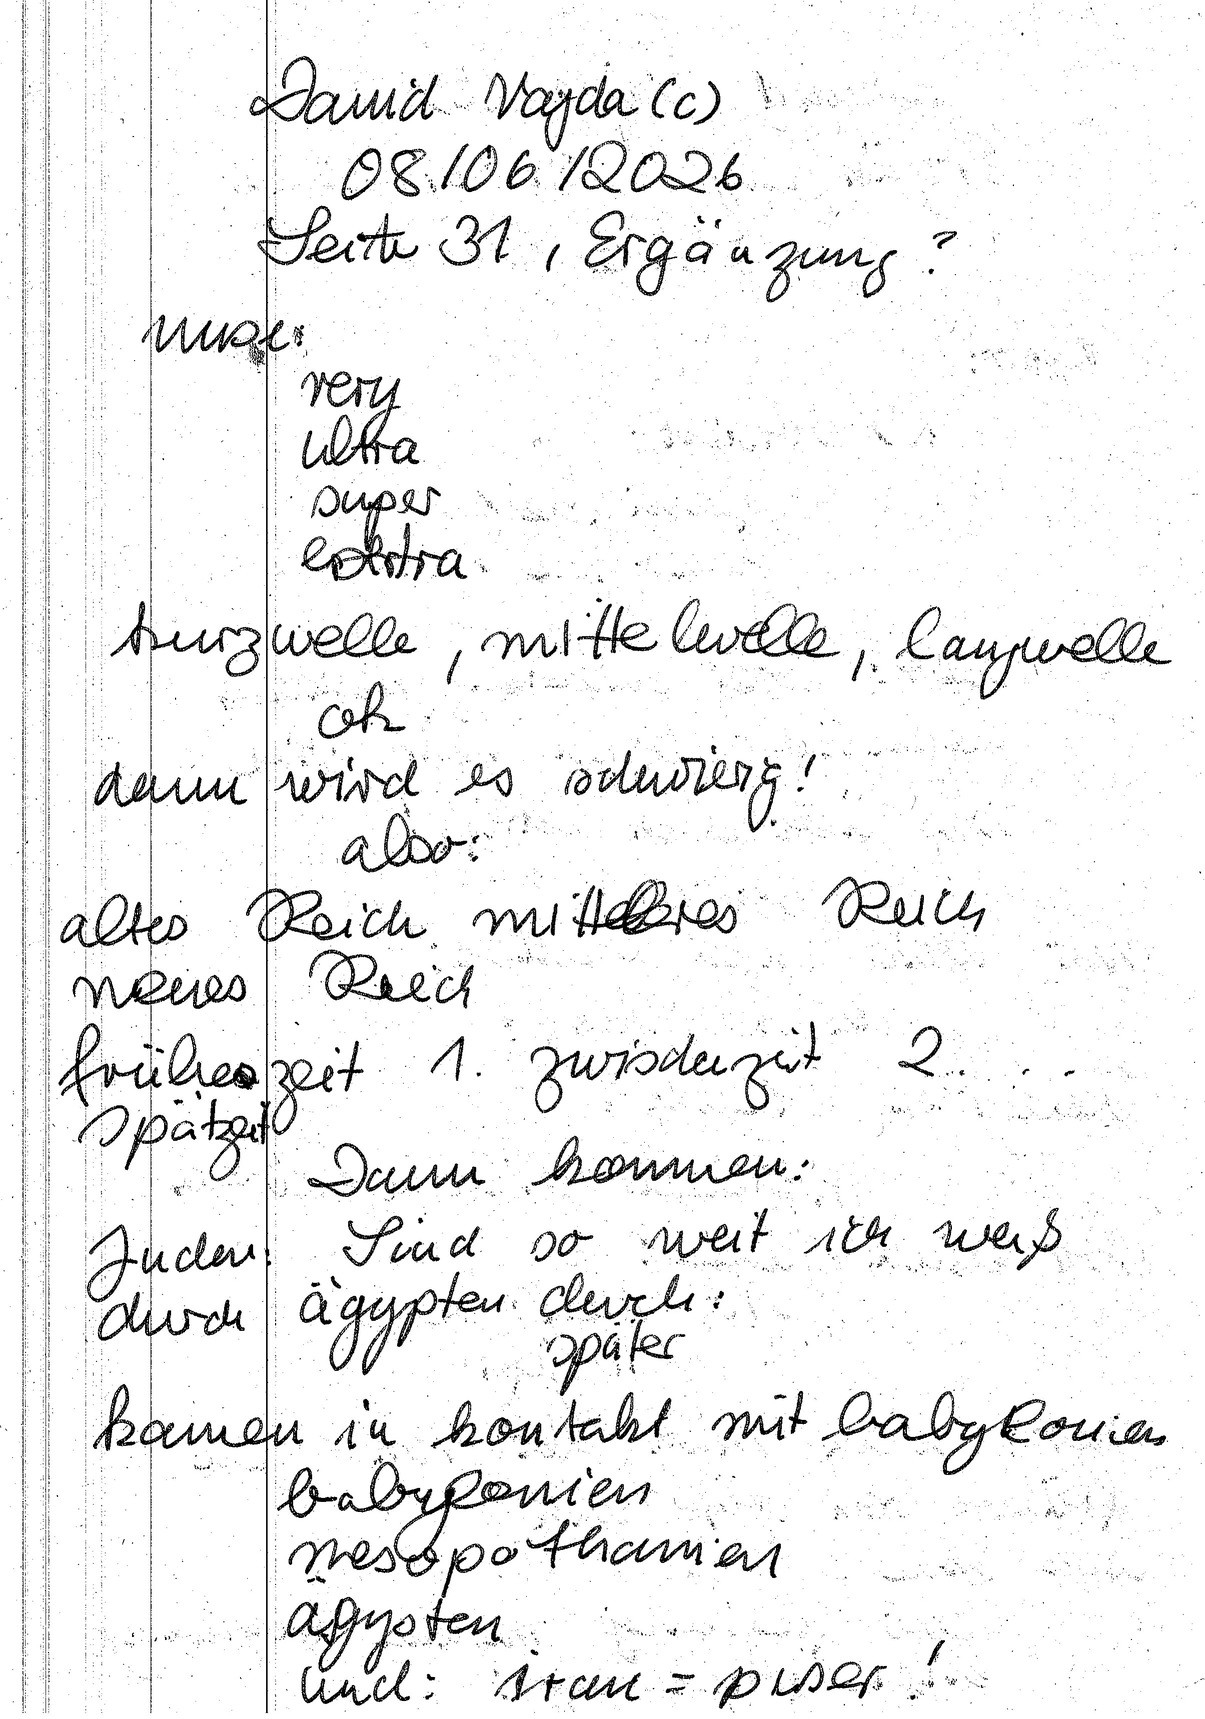 David Vajda (c)
08/06/2026
Seite 31, Ergänzung?
very
ultra
super
extra
kurzwelle, mittelwelle, langwelle
ok
dann wird es schwierig!
also:
altes Reich mittleres Reich
neues Reich
früheszeit 1. zwischenzeit 2. . .
spätzeit
Dann kommen:
Juden: Sind so weit ich weiß
durch ägypten durch:
später
kamen in kontakt mit babylonien
babylonien
mesopothamien
ägypten
und: iran = perser!